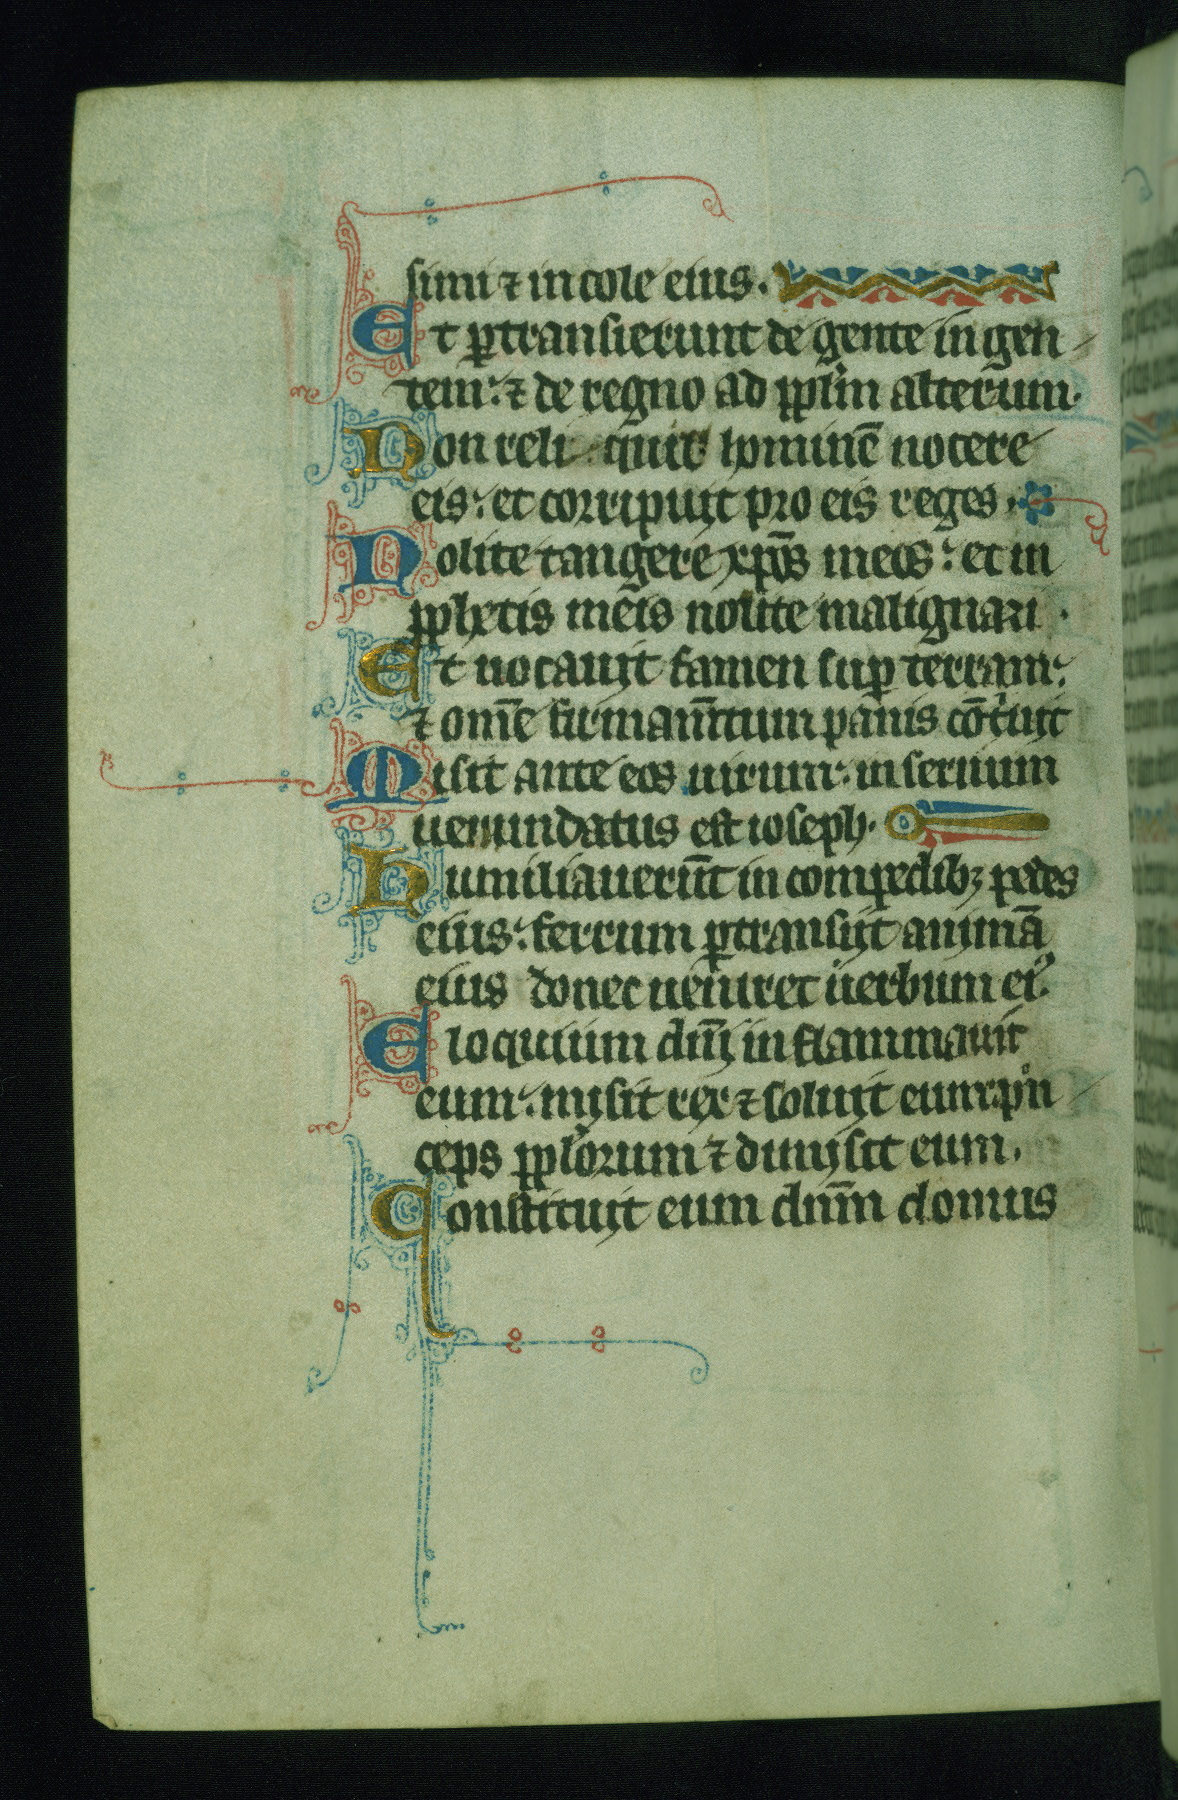 simi ⁊ incole eius.
Et ꝑtransierunt de gente in gen
tem: ⁊ de regno ad pplm̄ alterum.
Non reliquit hominē nocere
eis: et corripuit pro eis reges.
Nolite tangere xp̄os meos: et in
pphetis meis nolite malignari.
Et uocauit famen suꝑ terram:
⁊ om̄e firmam̄tum panis cōtͥuit
Misit ante eos uirum: in seruum
uenundatus est ioseph.
Humiliauerūt in compedibꝫ pedes
eius: ferrum ꝑtransiit animā
eius donec ueniret uerbum eiꝰ.
Eloquium dn̄i inflammauit
eum: misit rex ⁊ soluit eum: pͥn
ceps pplorum ⁊ dimisit eum.
Constituit eum dn̄m domus